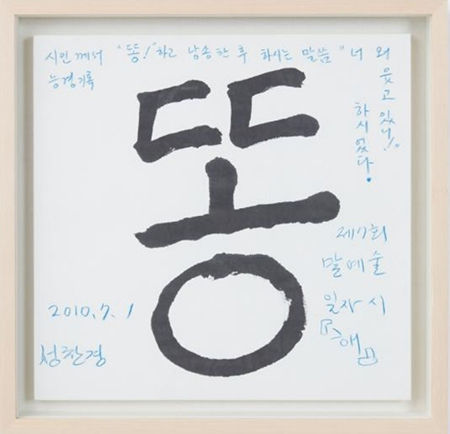 시인께서 "똥!" 하고 낭송한 후 하시는 말씀 "너 왜 웃고 있니!"
하시었다.
능경기록
똥
제17회
말예술
일자시
『해』
2010.7.1
성찬경